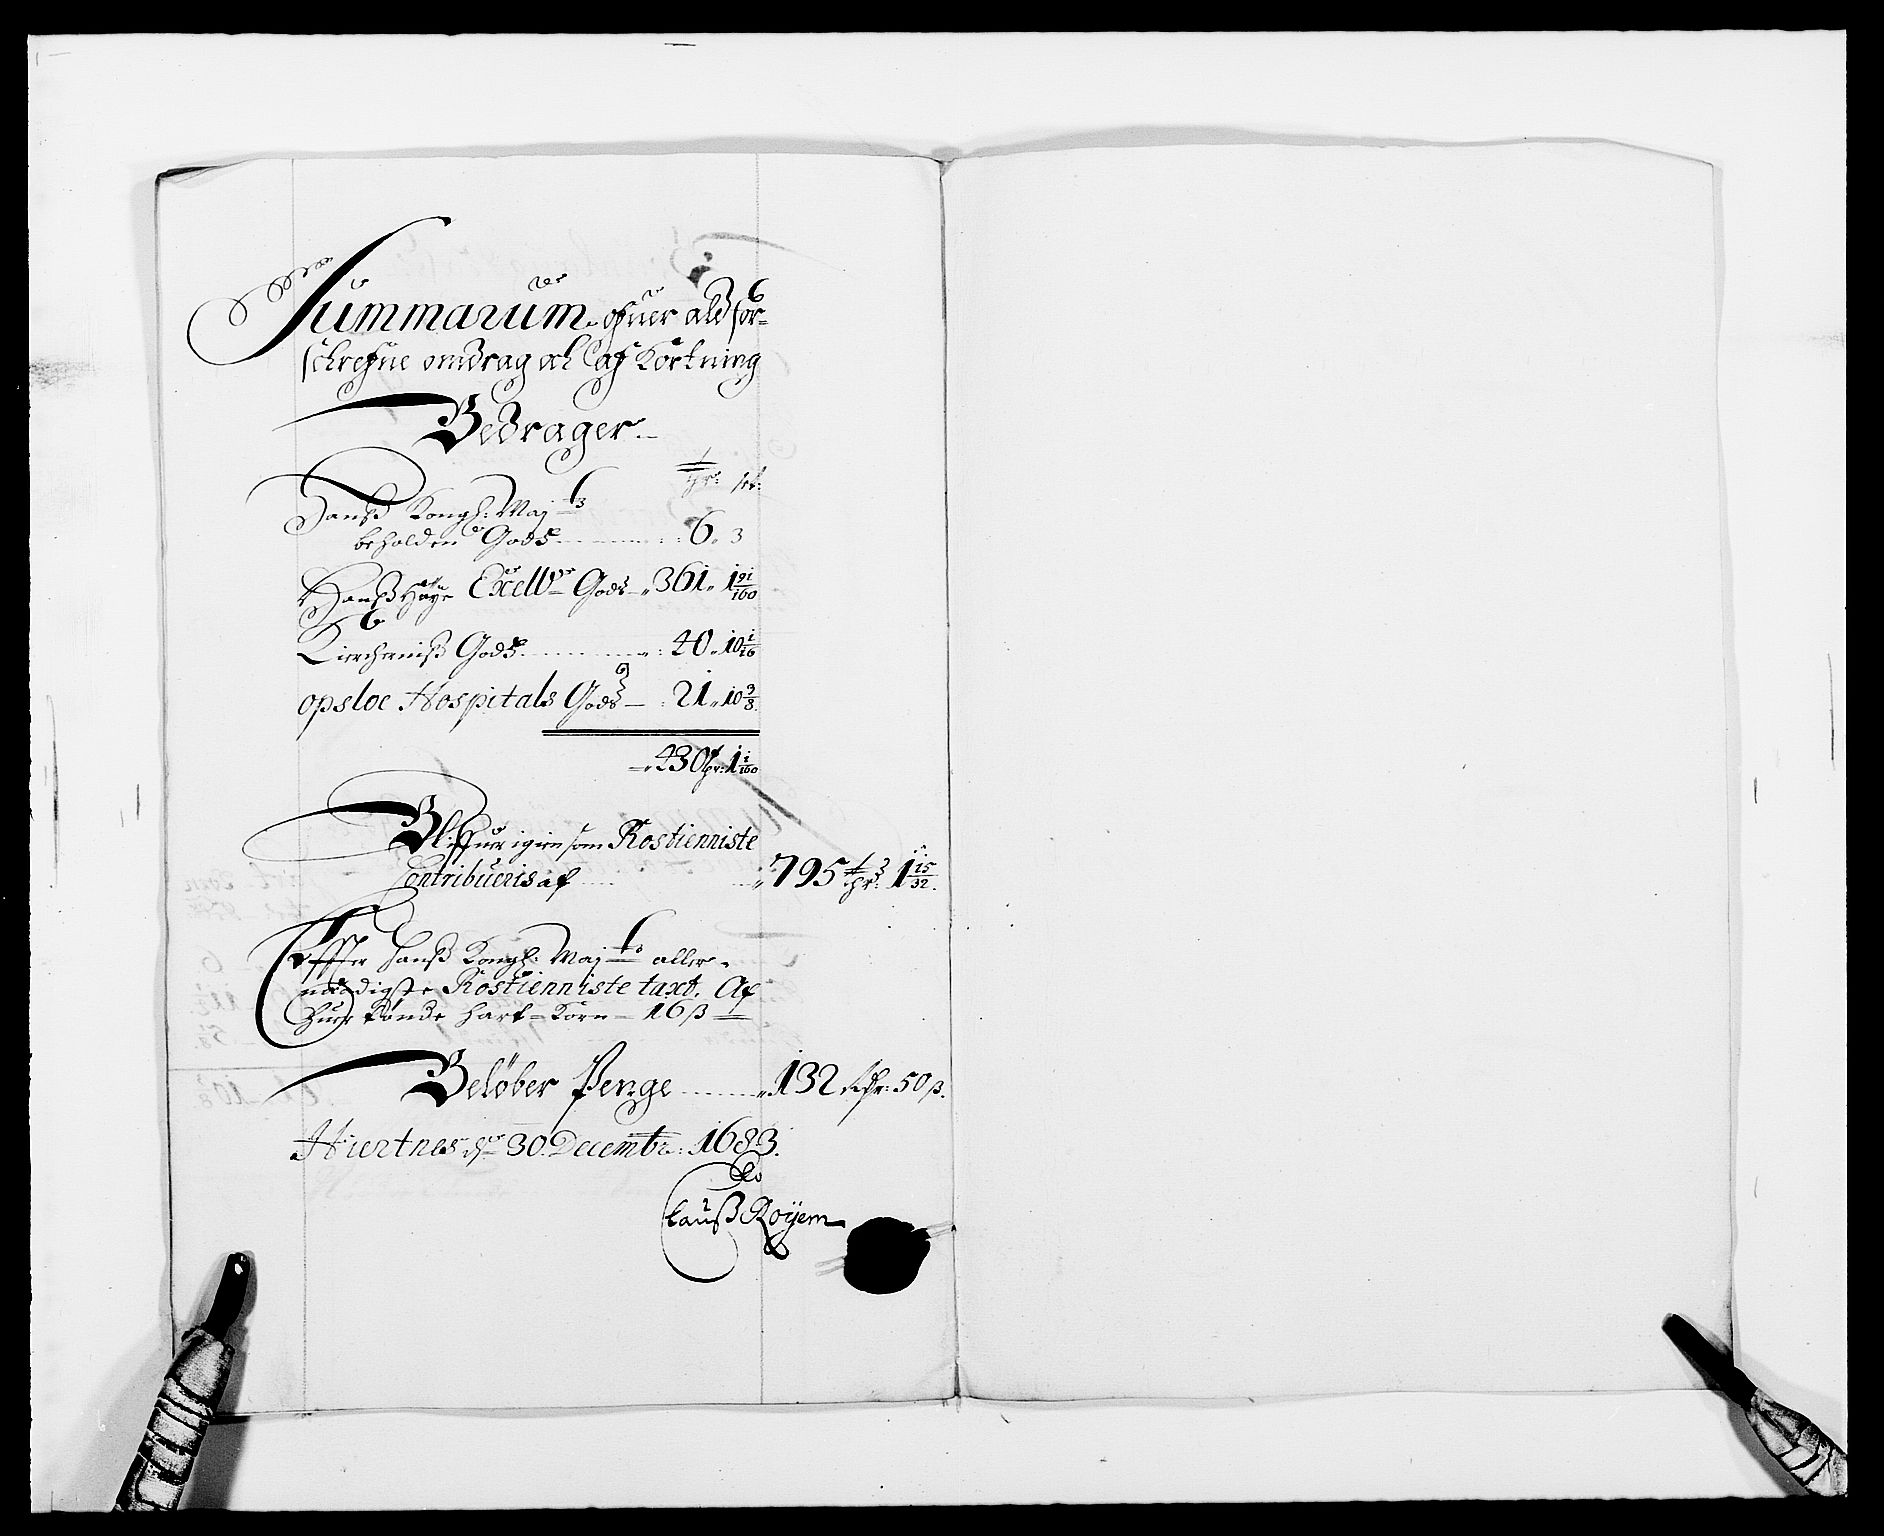 Summarum ofuer ald for-
schrefne omdrag och Cafkortning
Bedrager
thr: set:
Hanß Kongl: Maj:ts
beholden Gods 6. 3
Hanß Høye Excell: Gods 361. 1 91/160
Kircherniß Gods 40. 10 1/16
opsloe Hospitals Gods 21. 10 3/8
430 thr: 1 1/160
Blifuer igien som Rostienniste
Contribueris af 795 thr: 1 15/32
Efter Hanß Kongl: Maj:ts aller-
naadigste Rostienniste taxt. Af
huer tønde hart-Korn 16 ß
Beløber Penge 132 Rdr: 50 ß.
Hiertnes d: 30. Decembr: 1683.
Clauß Røyem